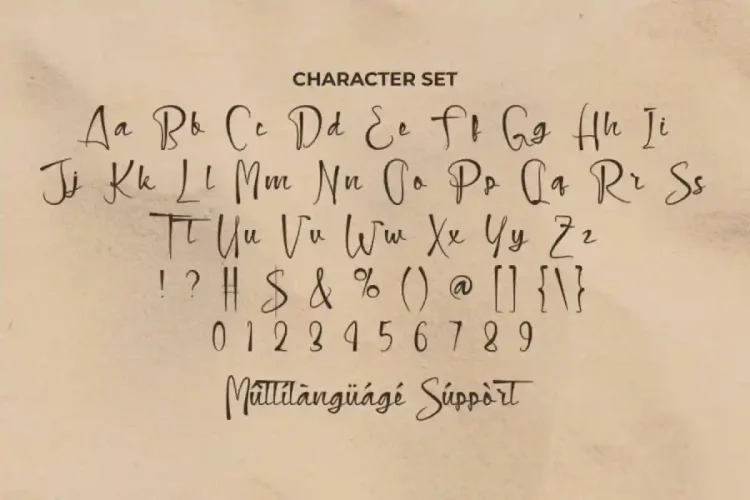 CHARACTER SET
Aa Bb Cc Dd Ee Ff Gg Hh Ii
Jj Kk Ll Mm Nn Oo Pp Qq Rr Ss
Tt Uu Vv Ww Xx Yy Zz
! ? # $ & % () @ [] {\}
0 1 2 3 4 5 6 7 8 9
Múltílàngüágé Súppòrt